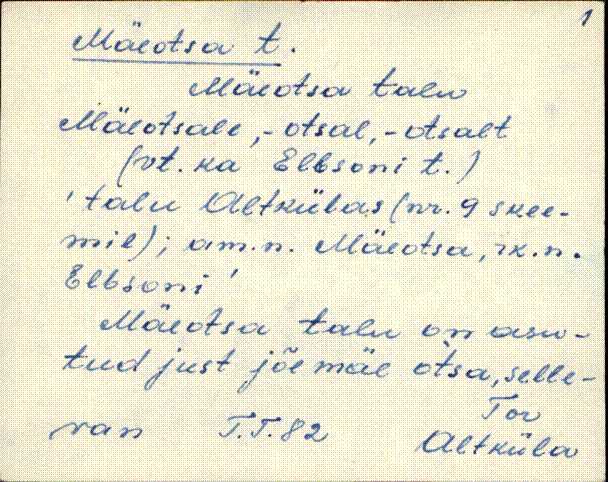 1
Mäeotsa t.
Mäeotsa talu
Mäeotsale, -otsal, -otsalt
(vt. ka Elbsoni t.)
'talu Altkülas (nr. 9 skee-
mil); am.n. Mäeotsa, rk.n.
Elbsoni'
Mäeotsa talu on asu-
tud just jõe mäe otsa, selle-
Tor
van T.T.82 Altküla